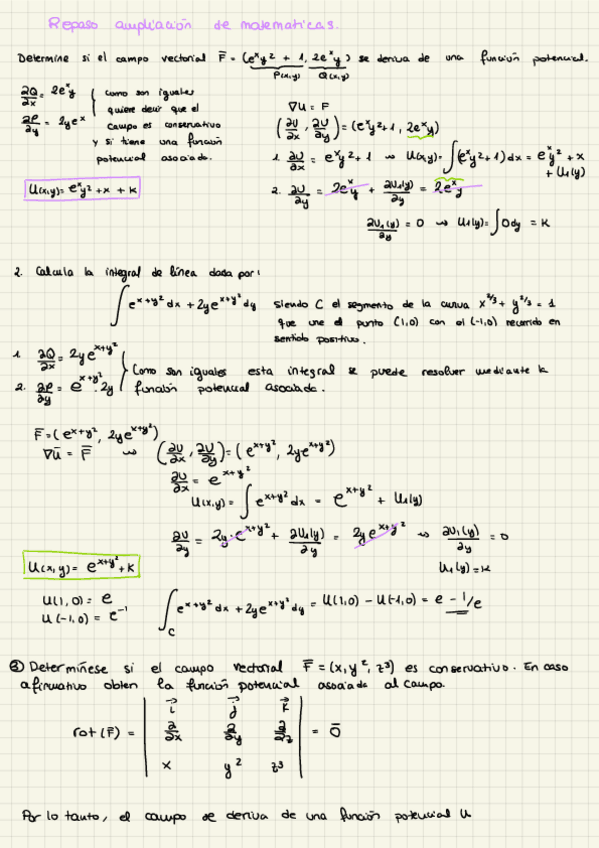 Repaso ampliación de matematicas.
Determine si el campo vectorial F̅ = (eˣy² + 1, 2eˣy) se deriva de una función potencial.
P(x,y) Q(x,y)
∂Q/∂x = 2eˣy
∂P/∂y = 2yeˣ
como son iguales
quiere decir que el
campo es conservativo
y si tiene una función
potencial asociada.
∇U = F
(∂U/∂x, ∂U/∂y) = (eˣy²+1, 2eˣy)
1. ∂U/∂x = eˣy²+1 ⇝ U(x,y) = ∫(eˣy²+1)dx = eˣy² + x
+ U₁(y)
U(x,y) = eˣy² + x + k
2. ∂U/∂y = 2eˣy + ∂U₁(y)/∂y = 2eˣy
∂U₁(y)/∂y = 0 ⇝ U₁(y) = ∫0dy = K
2. Calcula la integral de línea dada por:
∫ e^(x+y²) dx + 2ye^(x+y²) dy siendo C el segmento de la curva x^(2/3) + y^(2/3) = 1
que une el punto (1,0) con el (-1,0) recorrido en
sentido positivo.
1. ∂Q/∂x = 2ye^(x+y²)
2. ∂P/∂y = e^(x+y²) · 2y
Como son iguales esta integral se puede resolver mediante la
función potencial asociada.
F̅ = (e^(x+y²), 2ye^(x+y²))
∇U̅ = F̅ ⇝ (∂U/∂x, ∂U/∂y) = (e^(x+y²), 2ye^(x+y²))
∂U/∂x = e^(x+y²)
U(x,y) = ∫ e^(x+y²) dx = e^(x+y²) + U₁(y)
∂U/∂y = 2y·e^(x+y²) + ∂U₁(y)/∂y = 2ye^(x+y²) ⇝ ∂U₁(y)/∂y = 0
U(x,y) = e^(x+y²) + K
U₁(y) = K
U(1,0) = e
U(-1,0) = e⁻¹
∫_C e^(x+y²) dx + 2ye^(x+y²) dy = U(1,0) - U(-1,0) = e - 1/e
③ Determíñese si el campo vectorial F̅ = (x, y², z³) es conservativo. En caso
afirmativo obten la función potencial asociada al campo.
rot(F̅) = | i⃗ j⃗ k⃗ |
| ∂/∂x ∂/∂y ∂/∂z | = 0̅
| x y² z³ |
Por lo tanto, el campo se deriva de una función potencial U